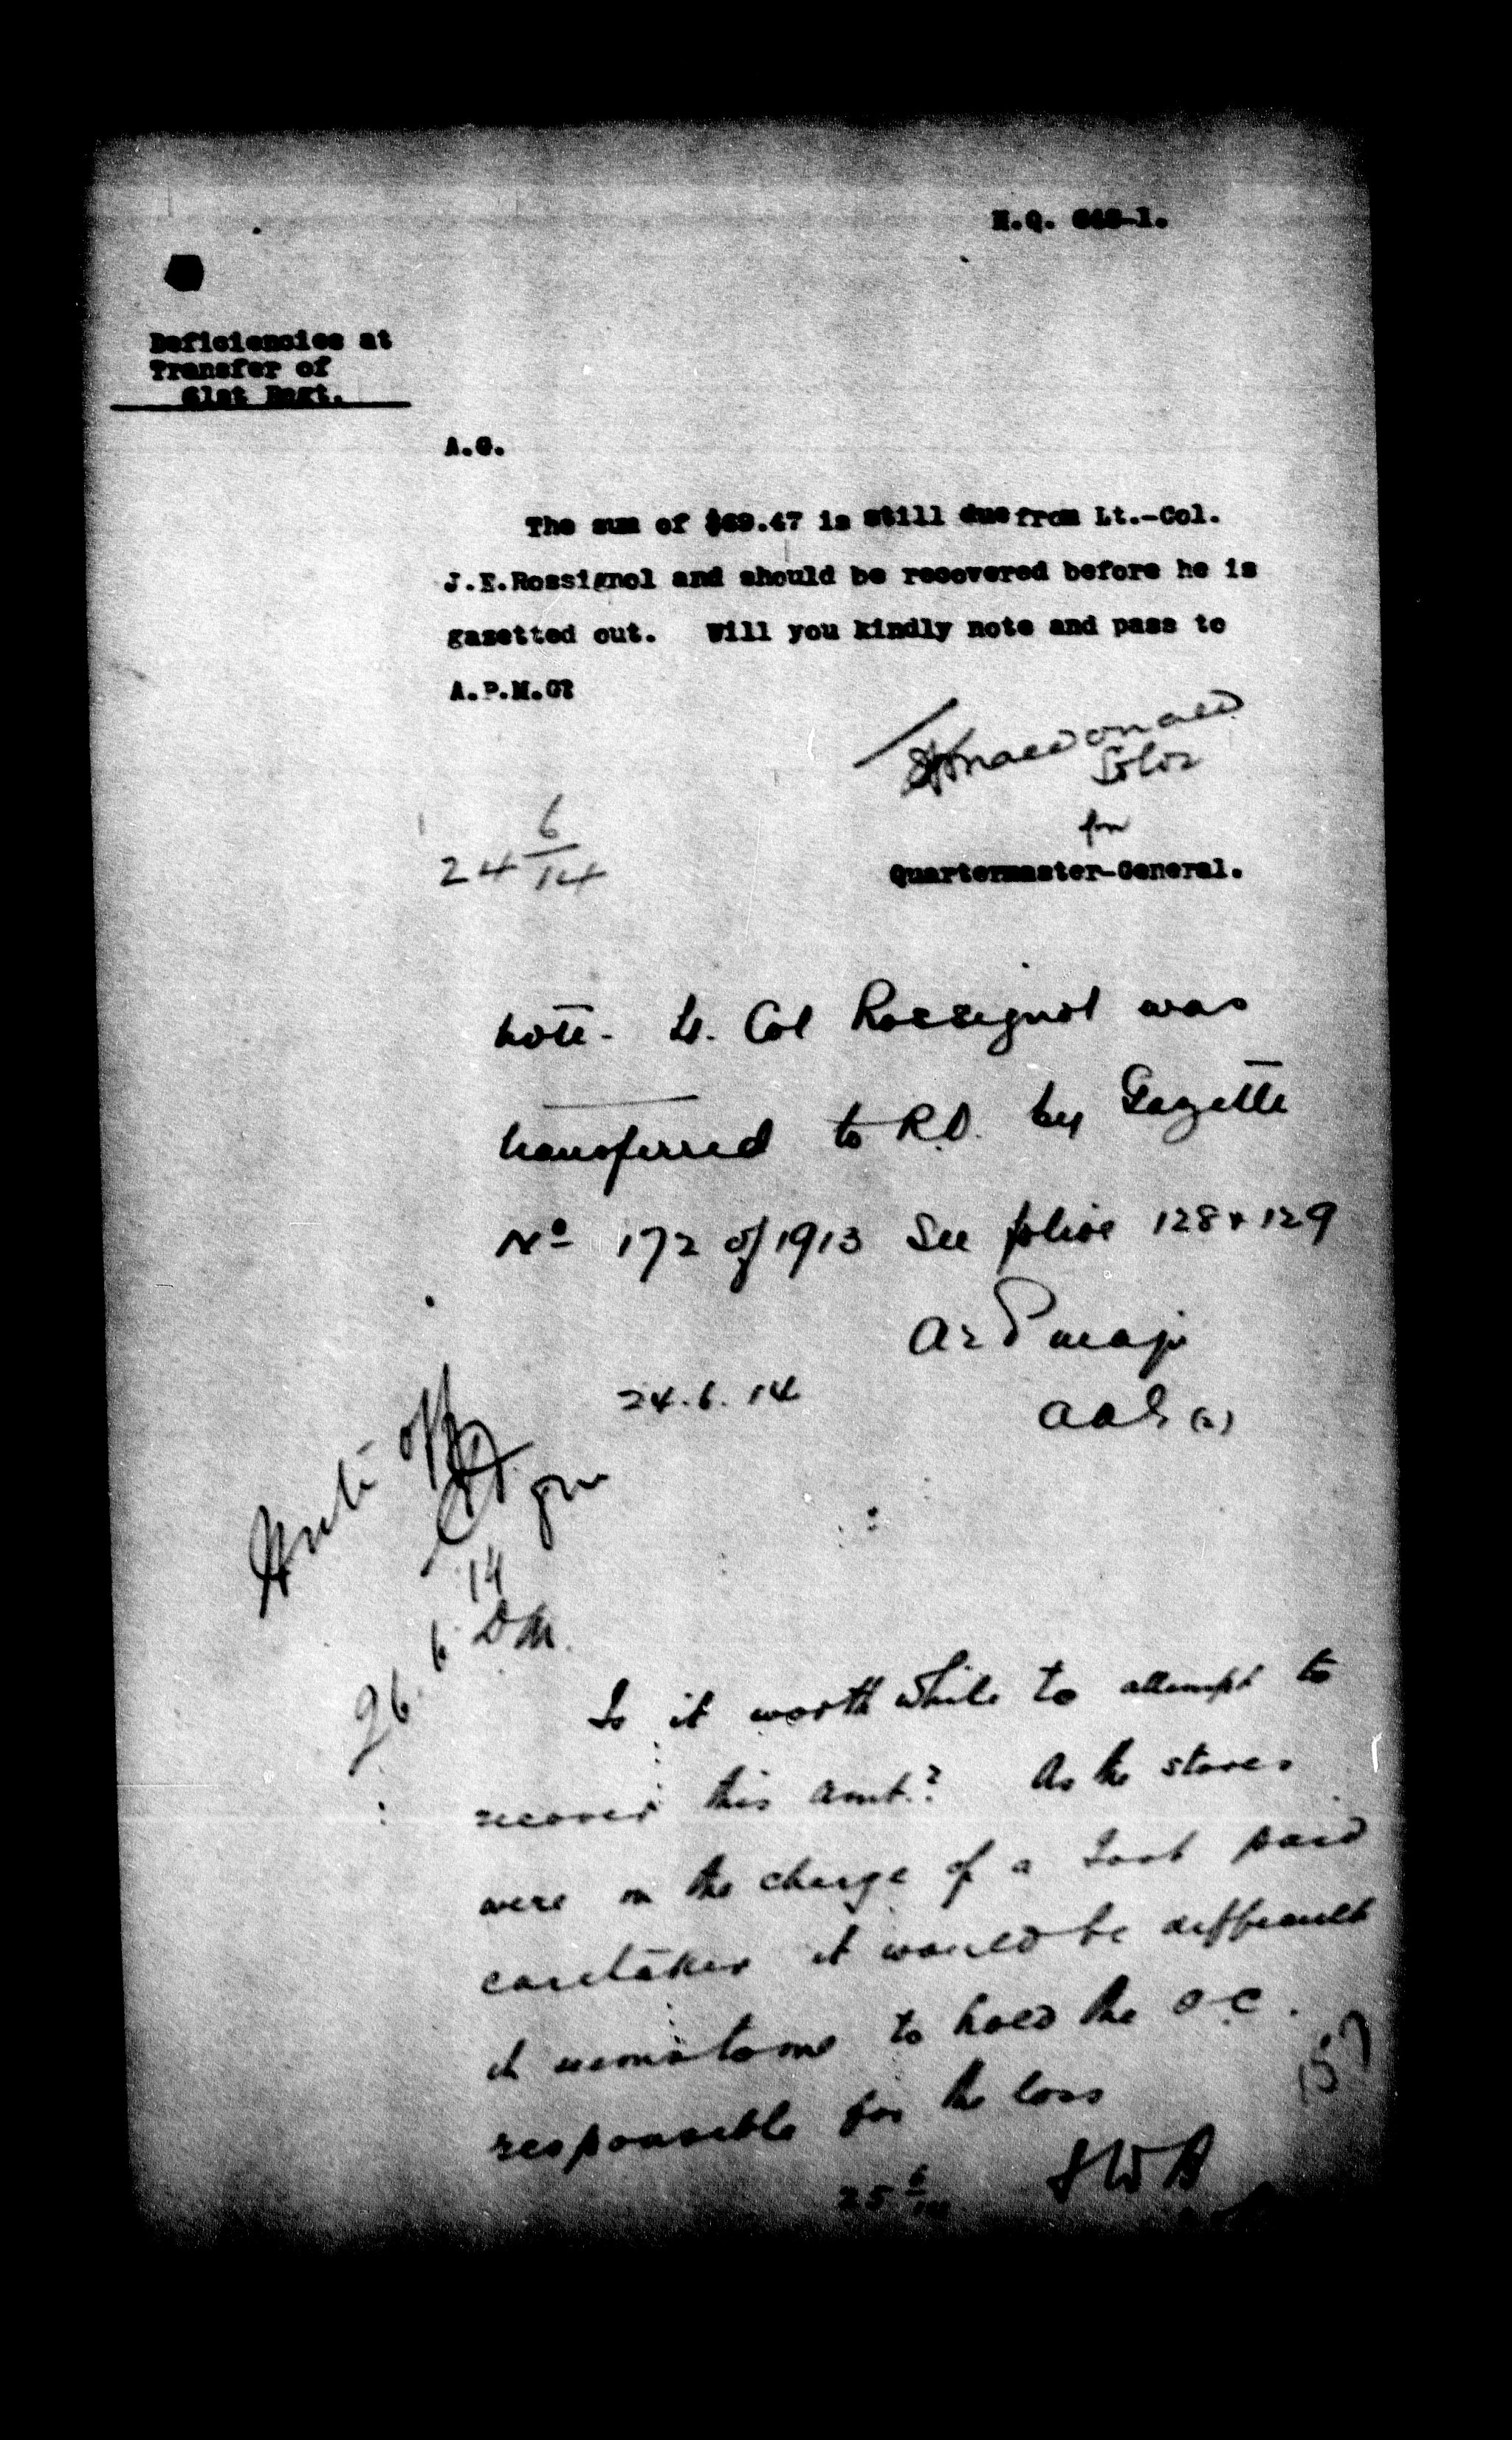 H.Q. 648-1.
Deficiencies at
Transfer of
61st Regt.
A.G.
The sum of $69.47 is still due from Lt.-Col.
J.E.Rossignol and should be recovered before he is
gazetted out. Will you kindly note and pass to
A.P.M.G?
Macdonald
for
Quartermaster-General.
24 6/14
Note - Lt. Col Rossignol was
transferred to R.O. by Gazette
No 172 of 1913 See folios 128 & 129
maj
AAG (2)
24.6.14
Write off
14
26.6.
Is it worth while to attempt to
recover this amt.? As the stores
were in the charge of a Govt paid
caretaker it would be difficult
it seems to me to hold the O.C.
responsible for the loss
157
25 6/14